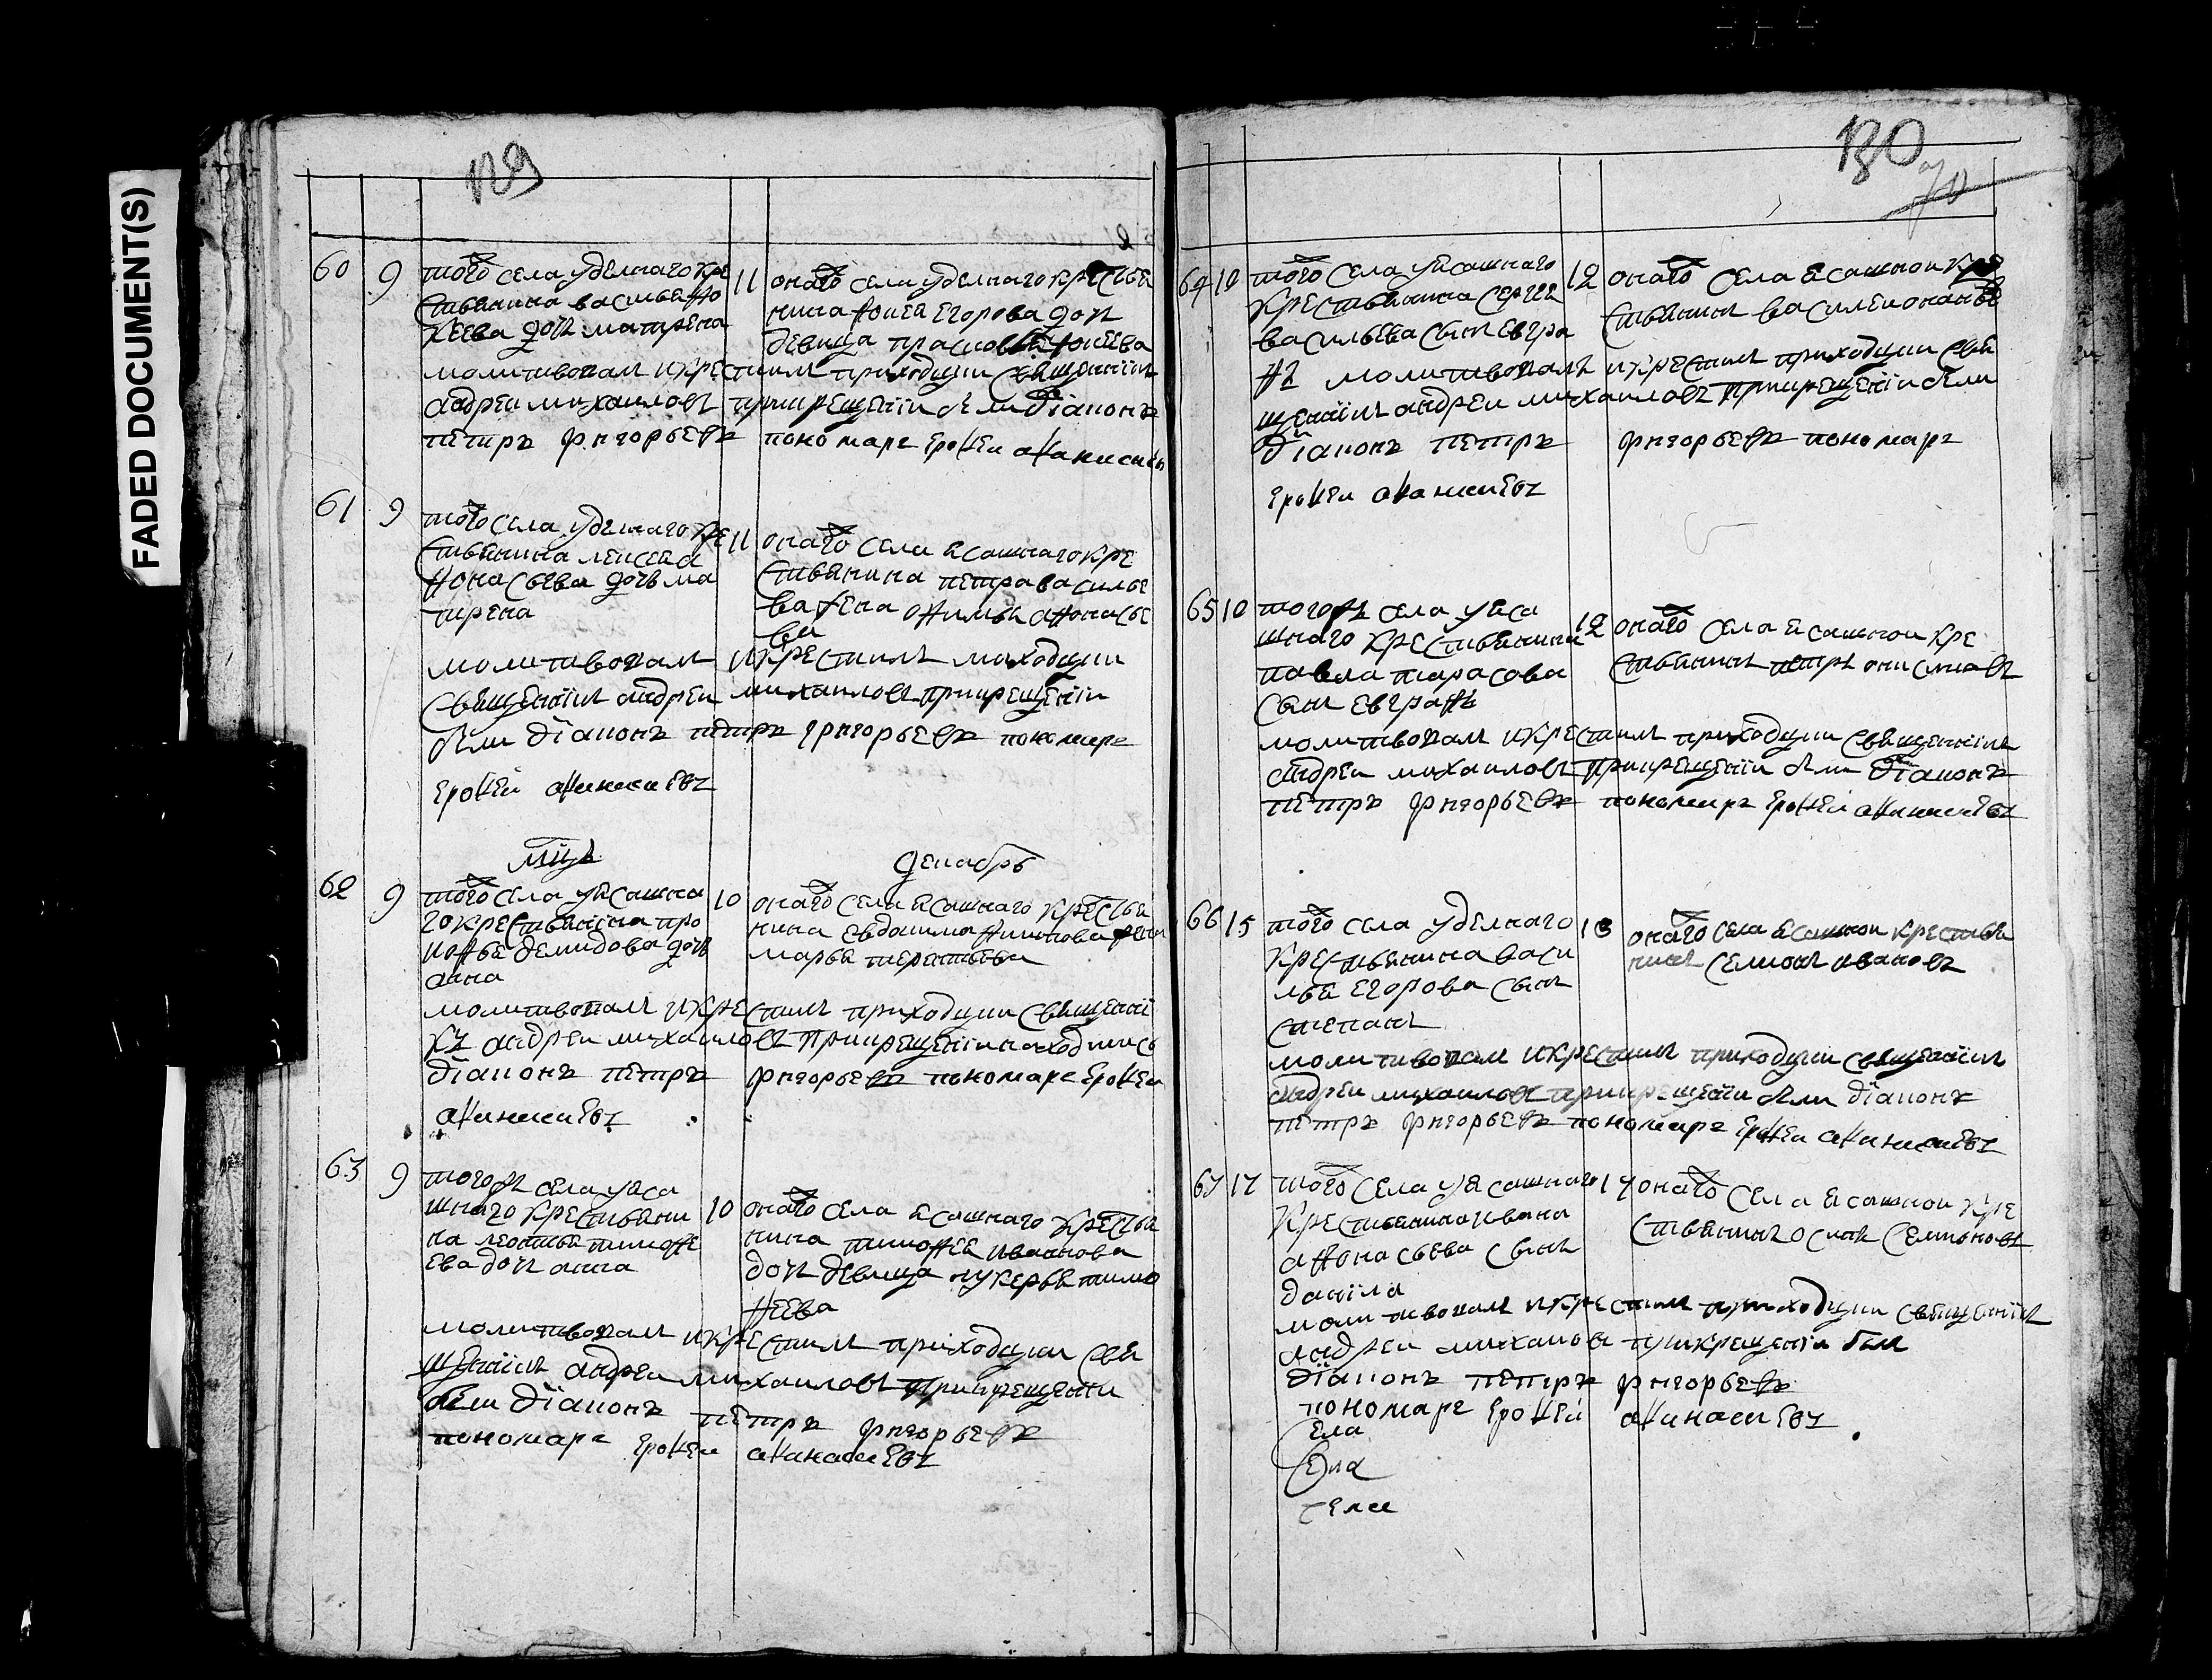 FADED DOCUMENT(S)
129
60 9 того села уделнаго кре
стьянина василья фо
кеева дочь матрена
11 онаго села уделнаго крестья
нина фокея егорова дочь
девица прасковья фокеева
молитвовалъ и крестилъ приходцки священникъ
андреи михаиловъ при крещенїи были дїаконъ
петръ григорьевъ пономарь ерофеи афанасьевъ
61 9 того села уделнаго кре
стьянина алексея а
фонасьева дочь ма
трена
11 онаго села ясашнаго кре
стьянина петра василье
ва жена афонасье
ва
молитвовалъ и крестилъ приходцки
священникъ андреи михаиловъ при крещенїи
были дїаконъ петръ григорьевъ пономарь
ерофеи афанасьевъ
мцъ декабрь
62 9 того села у ясашна
го крестьянина про
кофья демидова дочь
анна
10 онаго села ясашнаго крестья
нина евдокима жена
марья терентьева
молитвовалъ и крестилъ приходцки священни
къ андреи михаиловъ при крещенїи находились
дїаконъ петръ григорьевъ пономарь ерофеи
афанасьевъ
63 9 тогожъ села у яса
шнаго крестьяни
на леонтья тимофе
ева дочь анна
10 онаго села ясашнаго крестья
нина тимофея иванова
дочь девица лукерья тимо
феева
молитвовалъ и крестилъ приходцки свя
щенникъ андреи михаиловъ при крещенїи
были дїаконъ петръ григорьевъ
пономарь ерофеи афанасьевъ
130
70
64 10 того села у ясашнаго
крестьянина сергея
васильева сынъ евгра
фъ
12 онаго села ясашнои кре
стьянинъ василеи
молитвовалъ и крестилъ приходцки свя
щенникъ андреи михаиловъ при крещенїи были
дїаконъ петръ григорьевъ пономарь
ерофеи афанасьевъ
65 10 тогожъ села у яса
шнаго крестьянина
павла тарасова
сынъ евграфъ
12 онаго села ясашнои кре
стьянинъ петръ онисимовъ
молитвовалъ и крестилъ приходцки священникъ
андреи михаиловъ при крещенїи были дїаконъ
петръ григорьевъ пономарь ерофеи афанасьевъ
66 15 того села уделнаго
крестьянина васи
лья егорова сынъ
степанъ
18 онаго села ясашнои крестья
нинъ семионъ ивановъ
молитвовалъ и крестилъ приходцки священникъ
андреи михаиловъ при крещенїи были дїаконъ
петръ григорьевъ пономарь ерофеи афанасьевъ
67 17 того села у ясашнаго
крестьянина ивана
афонасьева сынъ
данїла
19 онаго села ясашнои кре
стьянинъ осипъ семионовъ
молитвовалъ и крестилъ приходцки священникъ
андреи михаиловъ при крещенїи были
дїаконъ петръ григорьевъ
пономарь ерофеи афанасьевъ
села
села